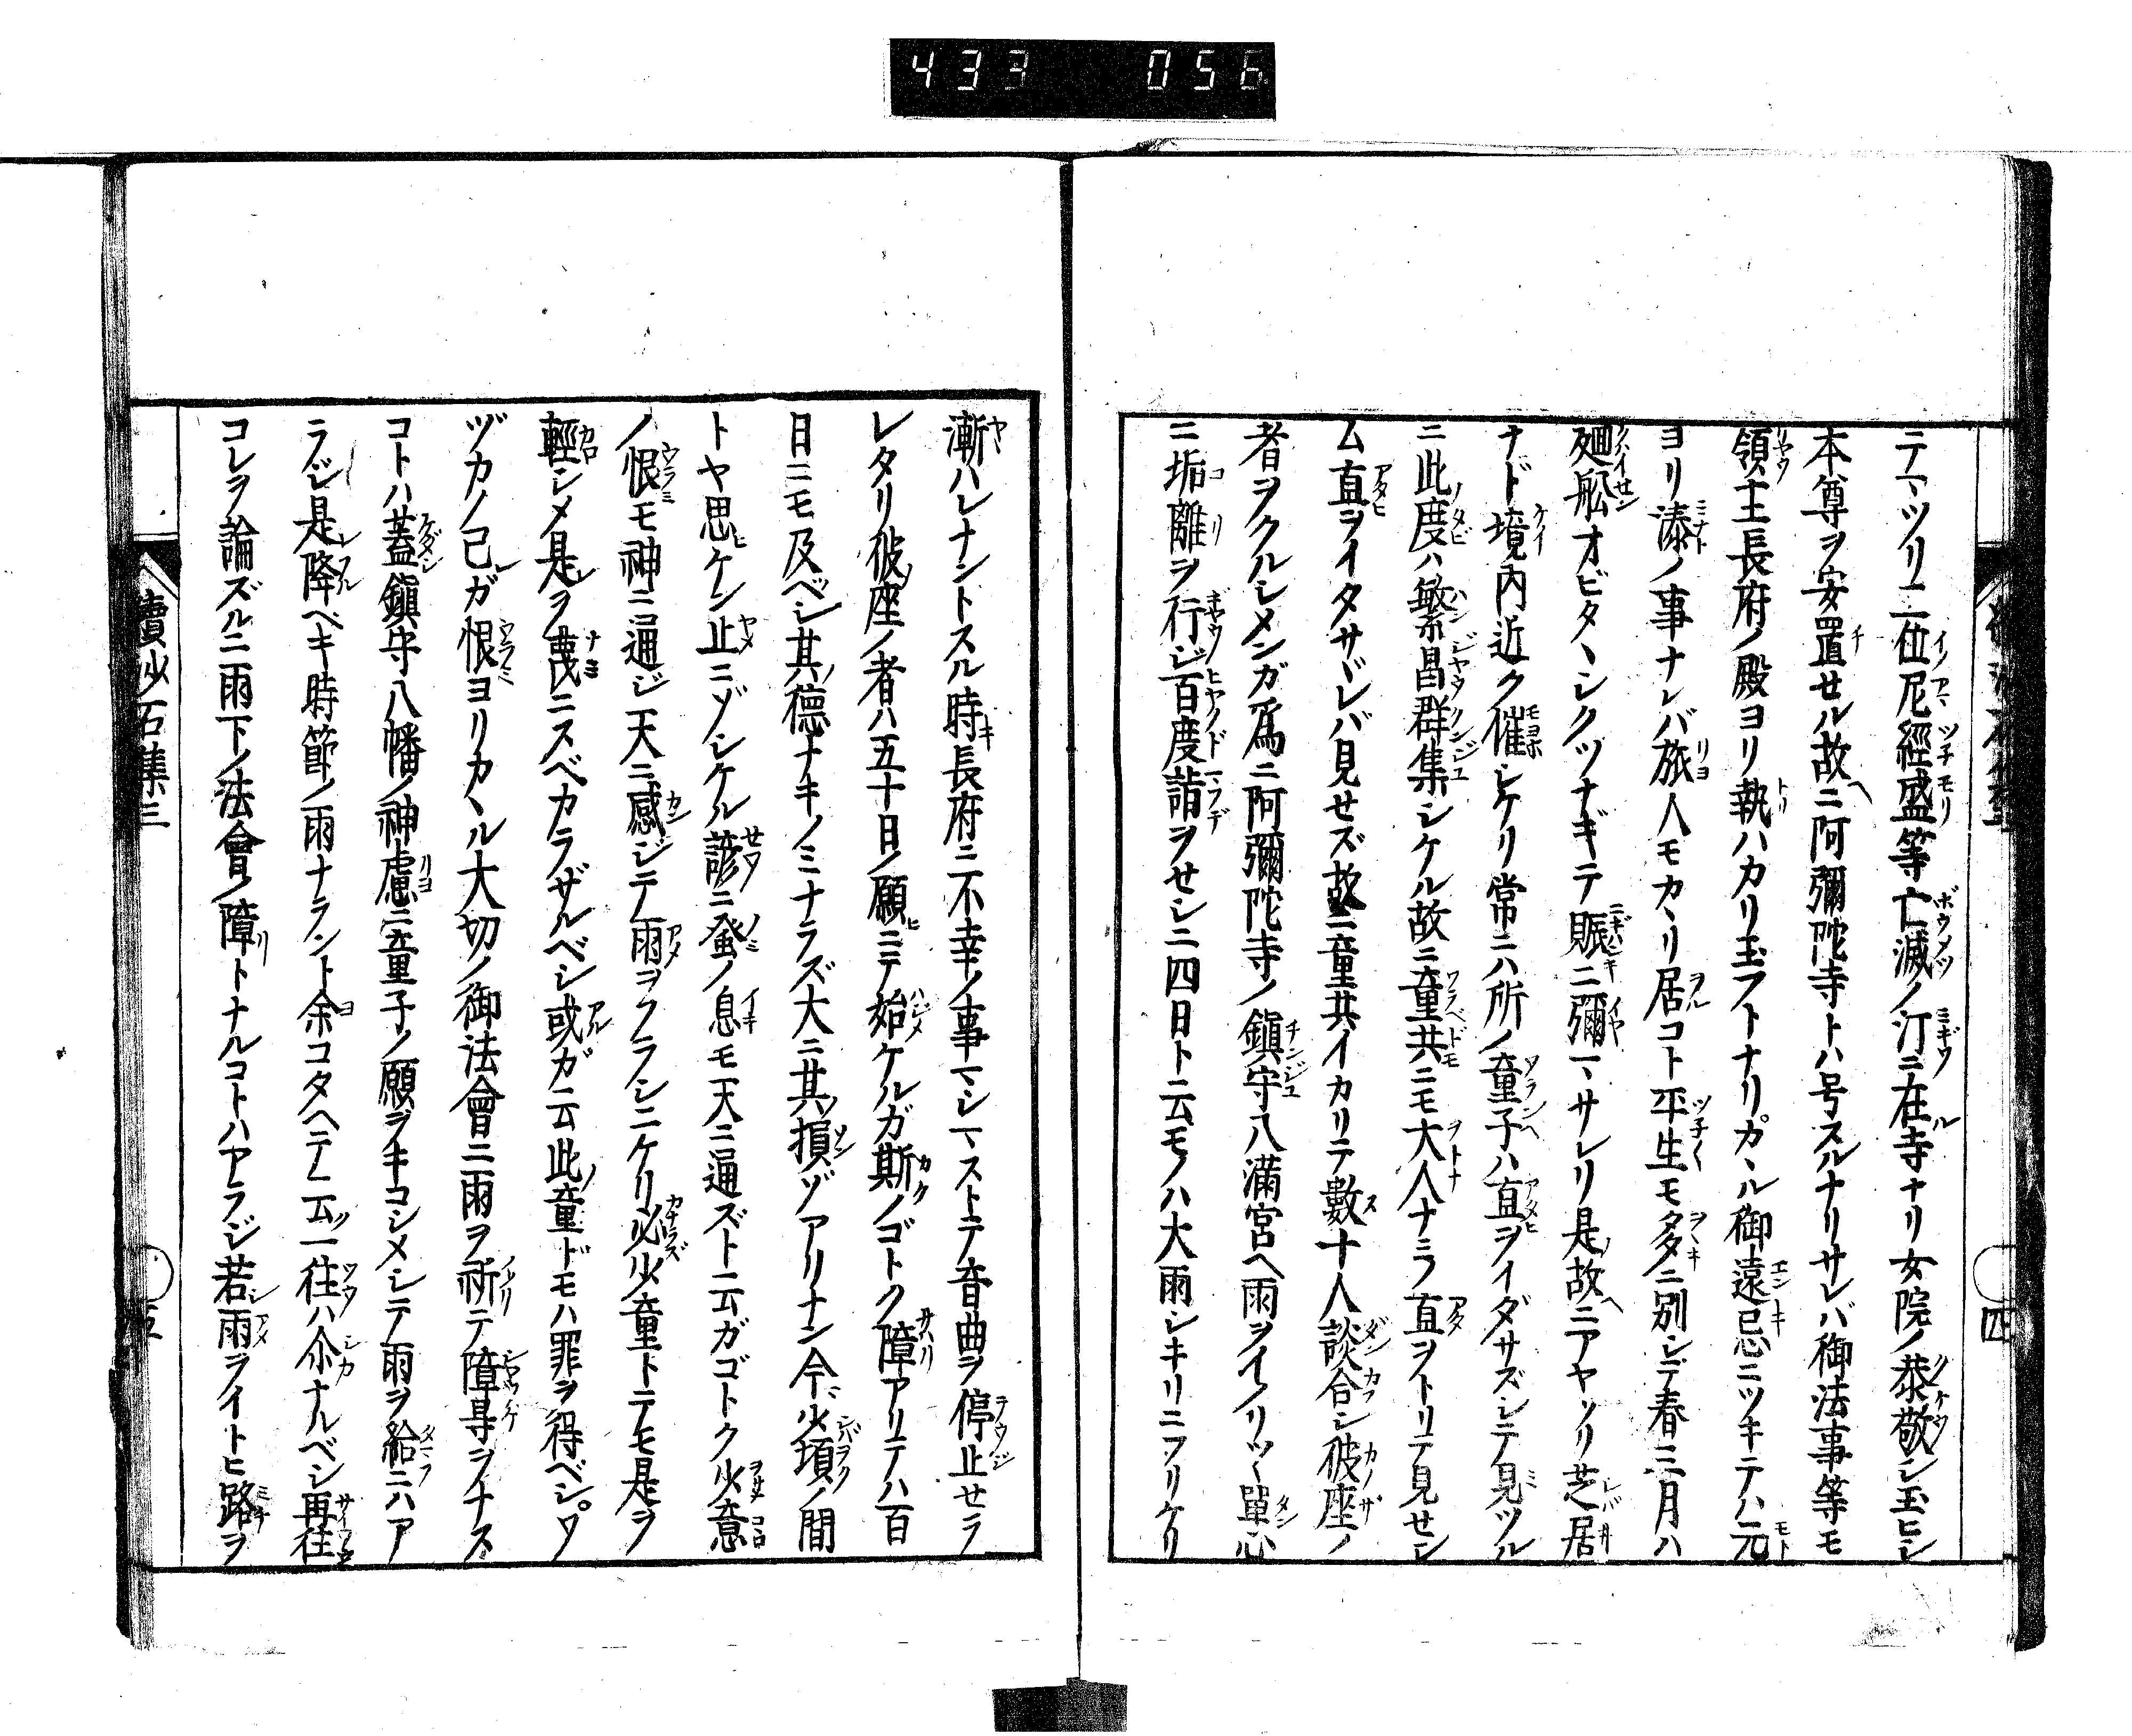 433 056
ニテマツリ二位尼經盛等亡滅ノ汀ニ在寺ナリ女院ノ恭敬シ玉ヒシ
本尊ヲ安置セル故ニ阿彌陀寺トハ号スルナリサレバ御法事等モ
領主長府ノ殿ヨリ執ハカリ玉フトナリカヽル御遠忌ニツキテハ元
ヨリ湊ノ事ナレバ旅人モカヽリ居コト平生モ多ニ別シデ春三月ハ
廻舩オビタヽシクツナギテ賑ニ彌マサレリ是故ニアヤツリ芝居
ナド境内近ク催シケリ常ニハ所ノ童子ハ直ヲイダサズシテ見ツル
ニ此度ハ繁昌群集シケル故ニ童共ニモ大人ナミラ直ヲトリテ見セシ
ム直ヲイタサヾレバ見セズ故ニ童共イカリテ數十人談合シ彼座ノ
者ヲクルシメンガ爲ニ阿彌陀寺ノ鎭守八滿宮ヘ雨ヲイノリツヽ單心
ニ垢離ヲ行ジ百度詣ヲセシニ四日ト云モノハ大雨シキリニフリケリ
四
漸ハレナントスル時長府ニ不幸ノ事マシマストテ音曲ヲ停止セラ
レタリ彼座ノ者ハ五十日ノ願ニテ始ケルガ斯ノゴトク障アリテハ百
日ニモ及ベシ其德ナキノミナラズ大ニ其損ゾアリナン今少頃ノ間
トヤ思ケン止ニゾシケル諺ニ蚤ノ息モ天ニ通ズト云ガゴトク少意
ノ恨モ神ニ通ジ天ニ感ジテ雨ヲクラシニケリ必少童トテモ是ヲ
輕シメ是ヲ蔑ニスベカラザルベシ或ガ云此童ドモハ罪ヲ得ベシワ
ヅカノ己ガ恨ヨリカヽル大切ノ御法會ニ雨ヲ祈テ障㝵ヲナス
コトハ蓋鎭守八幡ノ神慮ニ童子ノ願ヲキコシメシテ雨ヲ給ニハア
ラジ是降ベキ時節ノ雨ナラント余コタヘテ云一往ハ尓ナルベシ再往
コレヲ論ズルニ雨下ノ法會ノ障トナルコトハアラジ若雨ライトヒ路ヲ
續沙石集三
五